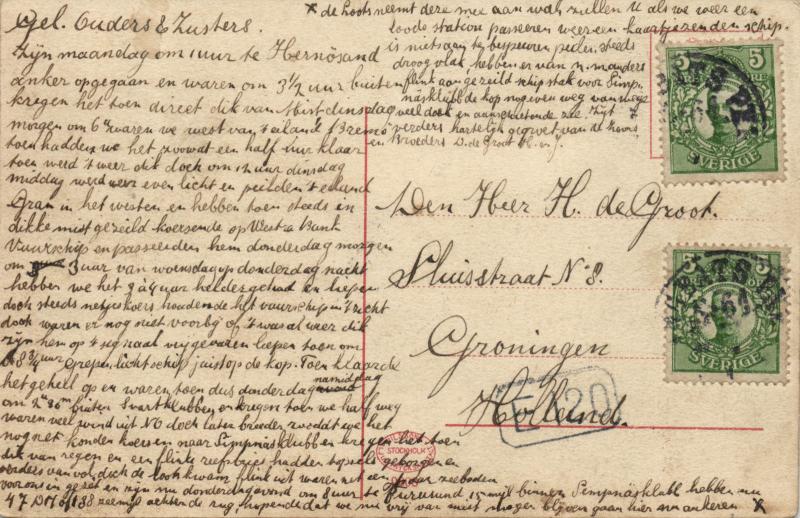 Gel. Ouders & Zusters.
Zijn maandag om 1 uur te Hernösand
anker opgegaan en waren om 3½ uur buiten
kregen het toen direct dik van Mist dinsdag
morgen om 6 waren we west van 't eiland Bremö
toen hadden we het zoowat een half uur klaar
toen werd 't weer dik doch om 12 uur dinsdag
middag werd weer even licht en peilden 't eiland
Gran in het westen en hebben toen steeds in
dikke mist gezeild koersende op Westra Bank
Vuurschip en passeerden hem donderdag morgen
om 3 uur van woensdag op donderdag nacht
hebben we het 3 a 4 uur helder gehad en liepen
doch steeds netjes koers houdende het vuurschip in 't zicht
doch waren er nog niet voorbij of 't was al weer dik
zijn hem op 't signaal
Grepen lichtschip juist op de kop. Toen klaarde
het geheel op en waren toen dus donderdag namiddag
om 2 u 30 m buiten Svartklubben en kregen toen we half weg
waren veel wind uit NO doch laten breeder zoodat we het
nog net konden koersen naar Simpnäsklubb en kregen het toen
dik van regen en een flinke reefbries hadden topzeils geborgen en
verders van vol, dich de loods kwam flink uit waren net een onder zeeboden
voorons in gezet en zijn nu donderdagavond om 8 uur te Furusund 15 mijl binnen Simpnäsklubb hebben nu
47 D of 188 zeemijl achter de rug, hopende dat we nu vrij van mist mogen blijven gaan hier nu ankeren x
x de loots neemt deze mee aan wal zullen U als we weer een
loods station passeeren weer een kaartje zenden schip.
is niets aan te bespeuren peilen steeds
droog vlak hebben er van n. manders
flink aan gezeild schip stak voor Simp-
näsklubb de kop nog even weg van wege
veel doek en aanschietende zee. Zijt
verders hartelijk gegroet van de Zoons
en Broeders D. de Groot H. en J.
Den Heer H. de Groot.
Sluisstraat No 8.
Groningen
Holland.
5 5
SVERIGE
5 5
SVERIGE
E 20
STOCKHOLM